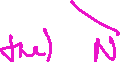 the) N